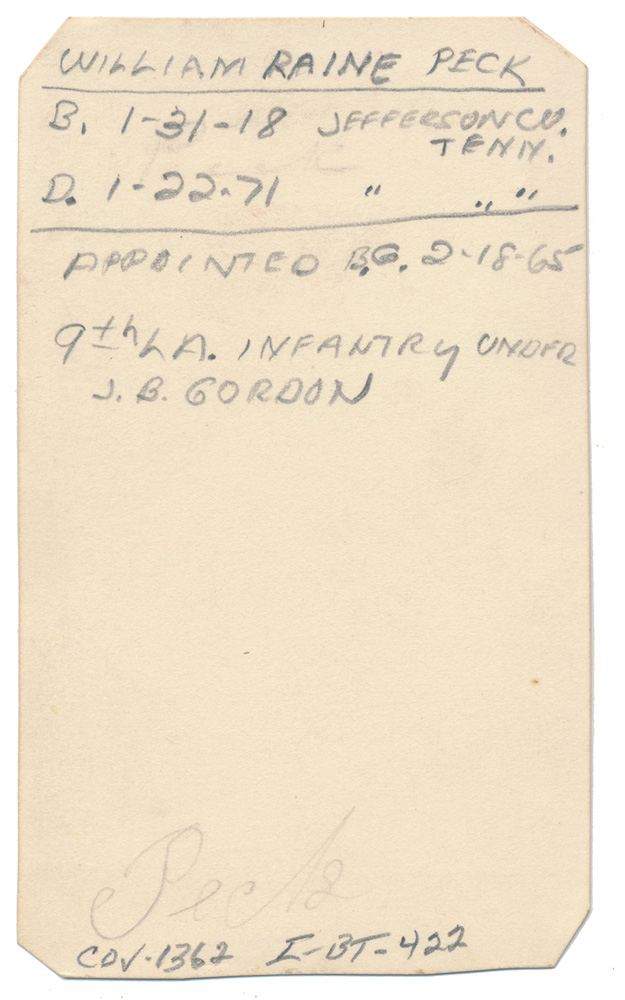 WILLIAM RAINE PECK
B. 1-31-18 JEFFERSON CO.
TENN.
D. 1-22-71 " " "
APPOINTED B.G. 2-18-65
9th LA. INFANTRY UNDER
J. B. GORDON
Peck
COV-1362 I-BT-422